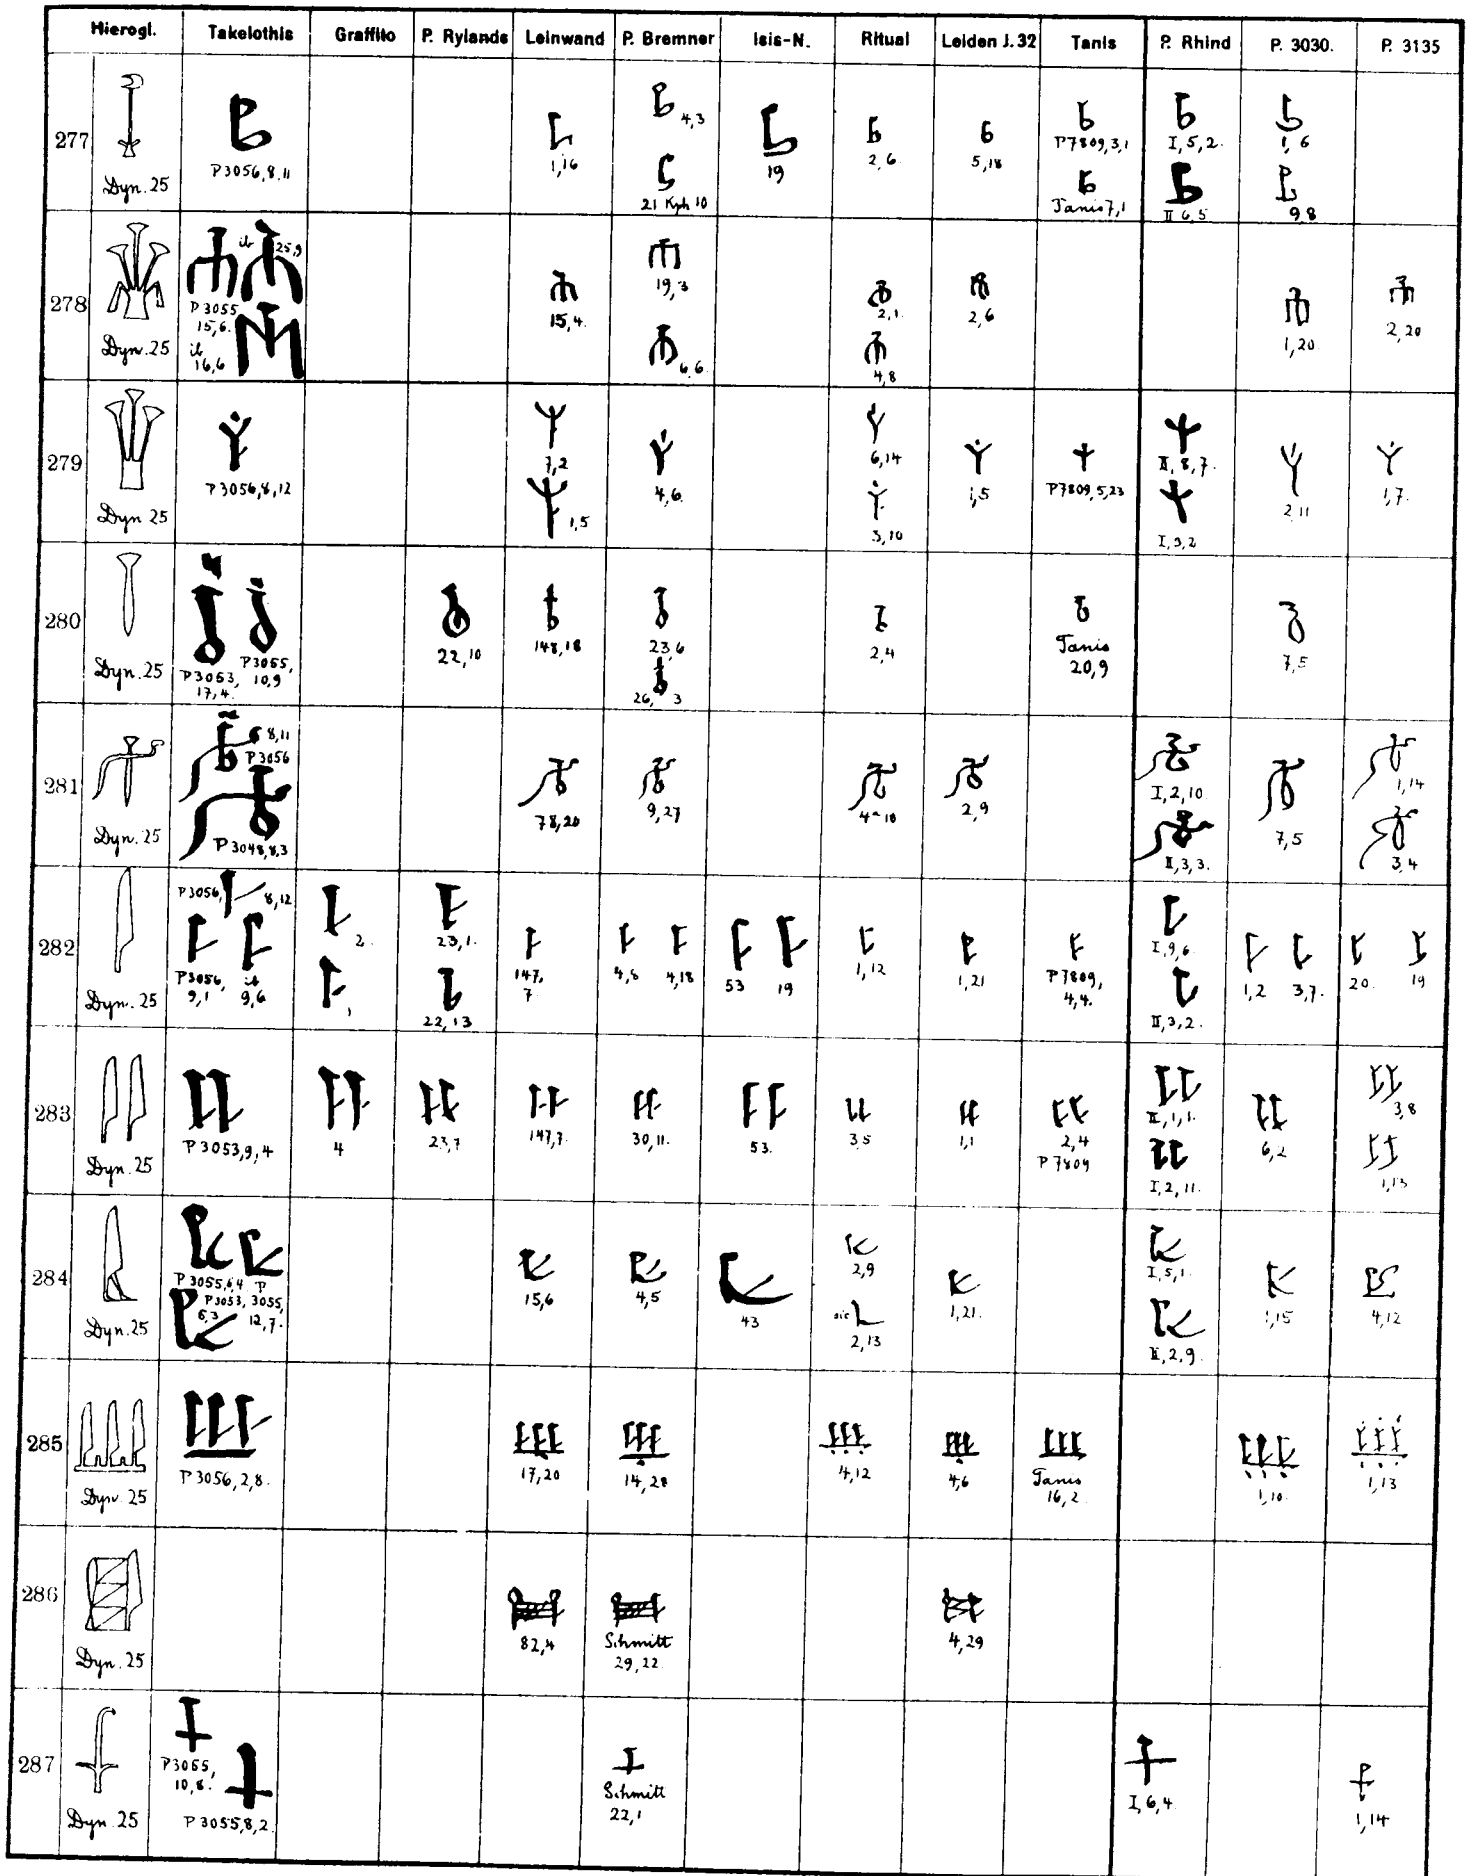 Hierogl. Takelothis Graffito P. Rylands Leinwand P. Bremner Isis-N. Ritual Leiden J. 32 Tanis P. Rhind P. 3030. P. 3135
277 Dyn. 25 P3056,8,11 1,16 4,3 21 Kph 10 19 2,6. 5,18 P7809,3,1 Tanis 7,1 I,5,2. II 6,5 1,6 9,8
278 Dyn. 25 P3055 15,6. ib 25,9 ib 16,6 15,4. 19,3 6,6. 2,1. 4,8 2,6 1,20. 2,20
279 Dyn 25 P3056,8,12 7,2 1,5 4,6. 6,14 3,10 1,5 P7809,5,23 II,8,7. I,3,2 2,11 1,7.
280 Dyn. 25 P3053, 17,4. P3055, 10,9 22,10 148,18 23,6 26,3 2,4 Tanis 20,9 7,5
281 Dyn. 25 8,11 P3056 P3048,8,3 78,20 9,27 4a 10 2,9 I,2,10. II,3,3. 7,5 1,14 3,4
282 Dyn. 25 P3056, 8,12 P3056, 9,1 ib 9,6 2. 1 23,1. 22,13 147, 7. 4,8 4,18 53 19 1,12 1,21 P7809, 4,4. I,9,6. II,3,2. 1,2 3,7. 20. 19
283 Dyn. 25 P3053,9,4 4 23,7 147,7. 30,11. 53. 3,5 1,1 2,4 P7809 II,1,1. I,2,11. 6,2 3,8 1,13
284 Dyn. 25 P3055,6,4 P P3053, 3055, 6,3 12,7. 15,6 4,5 43 2,9 sic 2,13 1,21. I,5,1. II,2,9. 1,15 4,12
285 Dyn. 25 P3056,2,8. 17,20 14,28 4,12 4,6 Tanis 16,2. 1,10. 1,13
286 Dyn. 25 82,4 Schmitt 29,22. 4,29
287 Dyn. 25 P3055, 10,8. P3055,8,2. Schmitt 22,1 I,6,4. 1,14